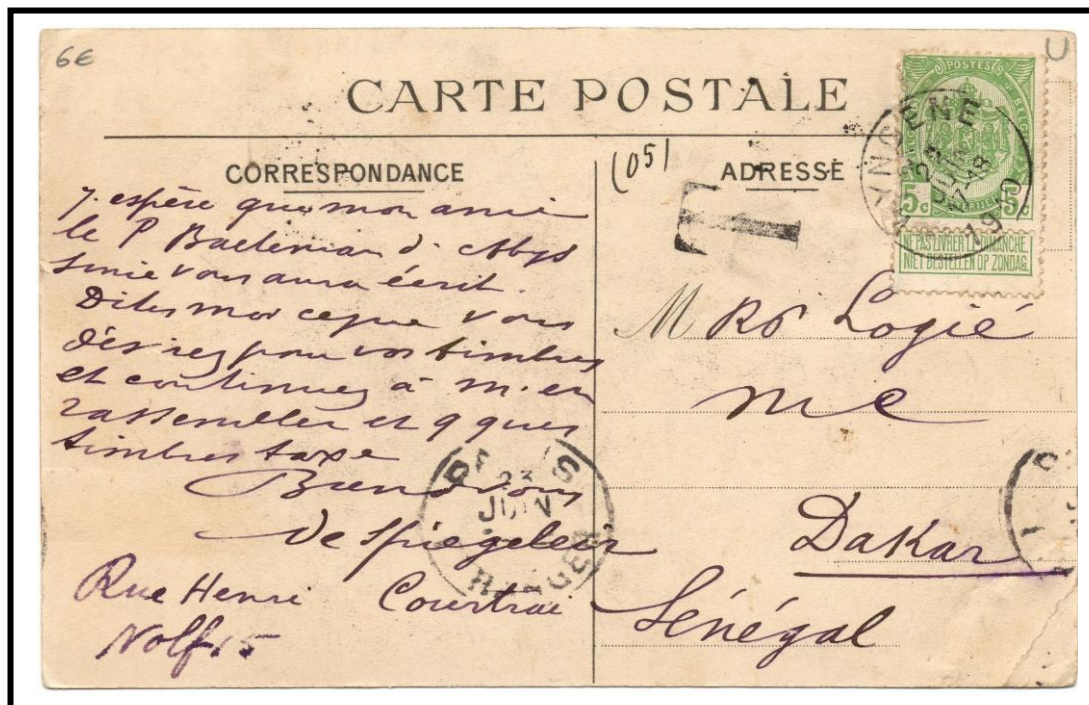 6€
U
CARTE POSTALE
CORRESPONDANCE
(05)
ADRESSE
J. espère que mon ami
le P Baeteman d. Abys
sinie vous aura écrit.
Dites moi ce que vous
désirez pour vos timbres
et continuez à m. en
rassembler et qques
timbres taxe
Bien à vous
De Spiegeleir
Rue Henri Courtrai
Nolf 15
T
POSTES
5c 5c
NE PAS LIVRER LE DIMANCHE
NIET BESTELLEN OP ZONDAG
1910
M RP Logié
Dakar
Sénégal
23
JUIN